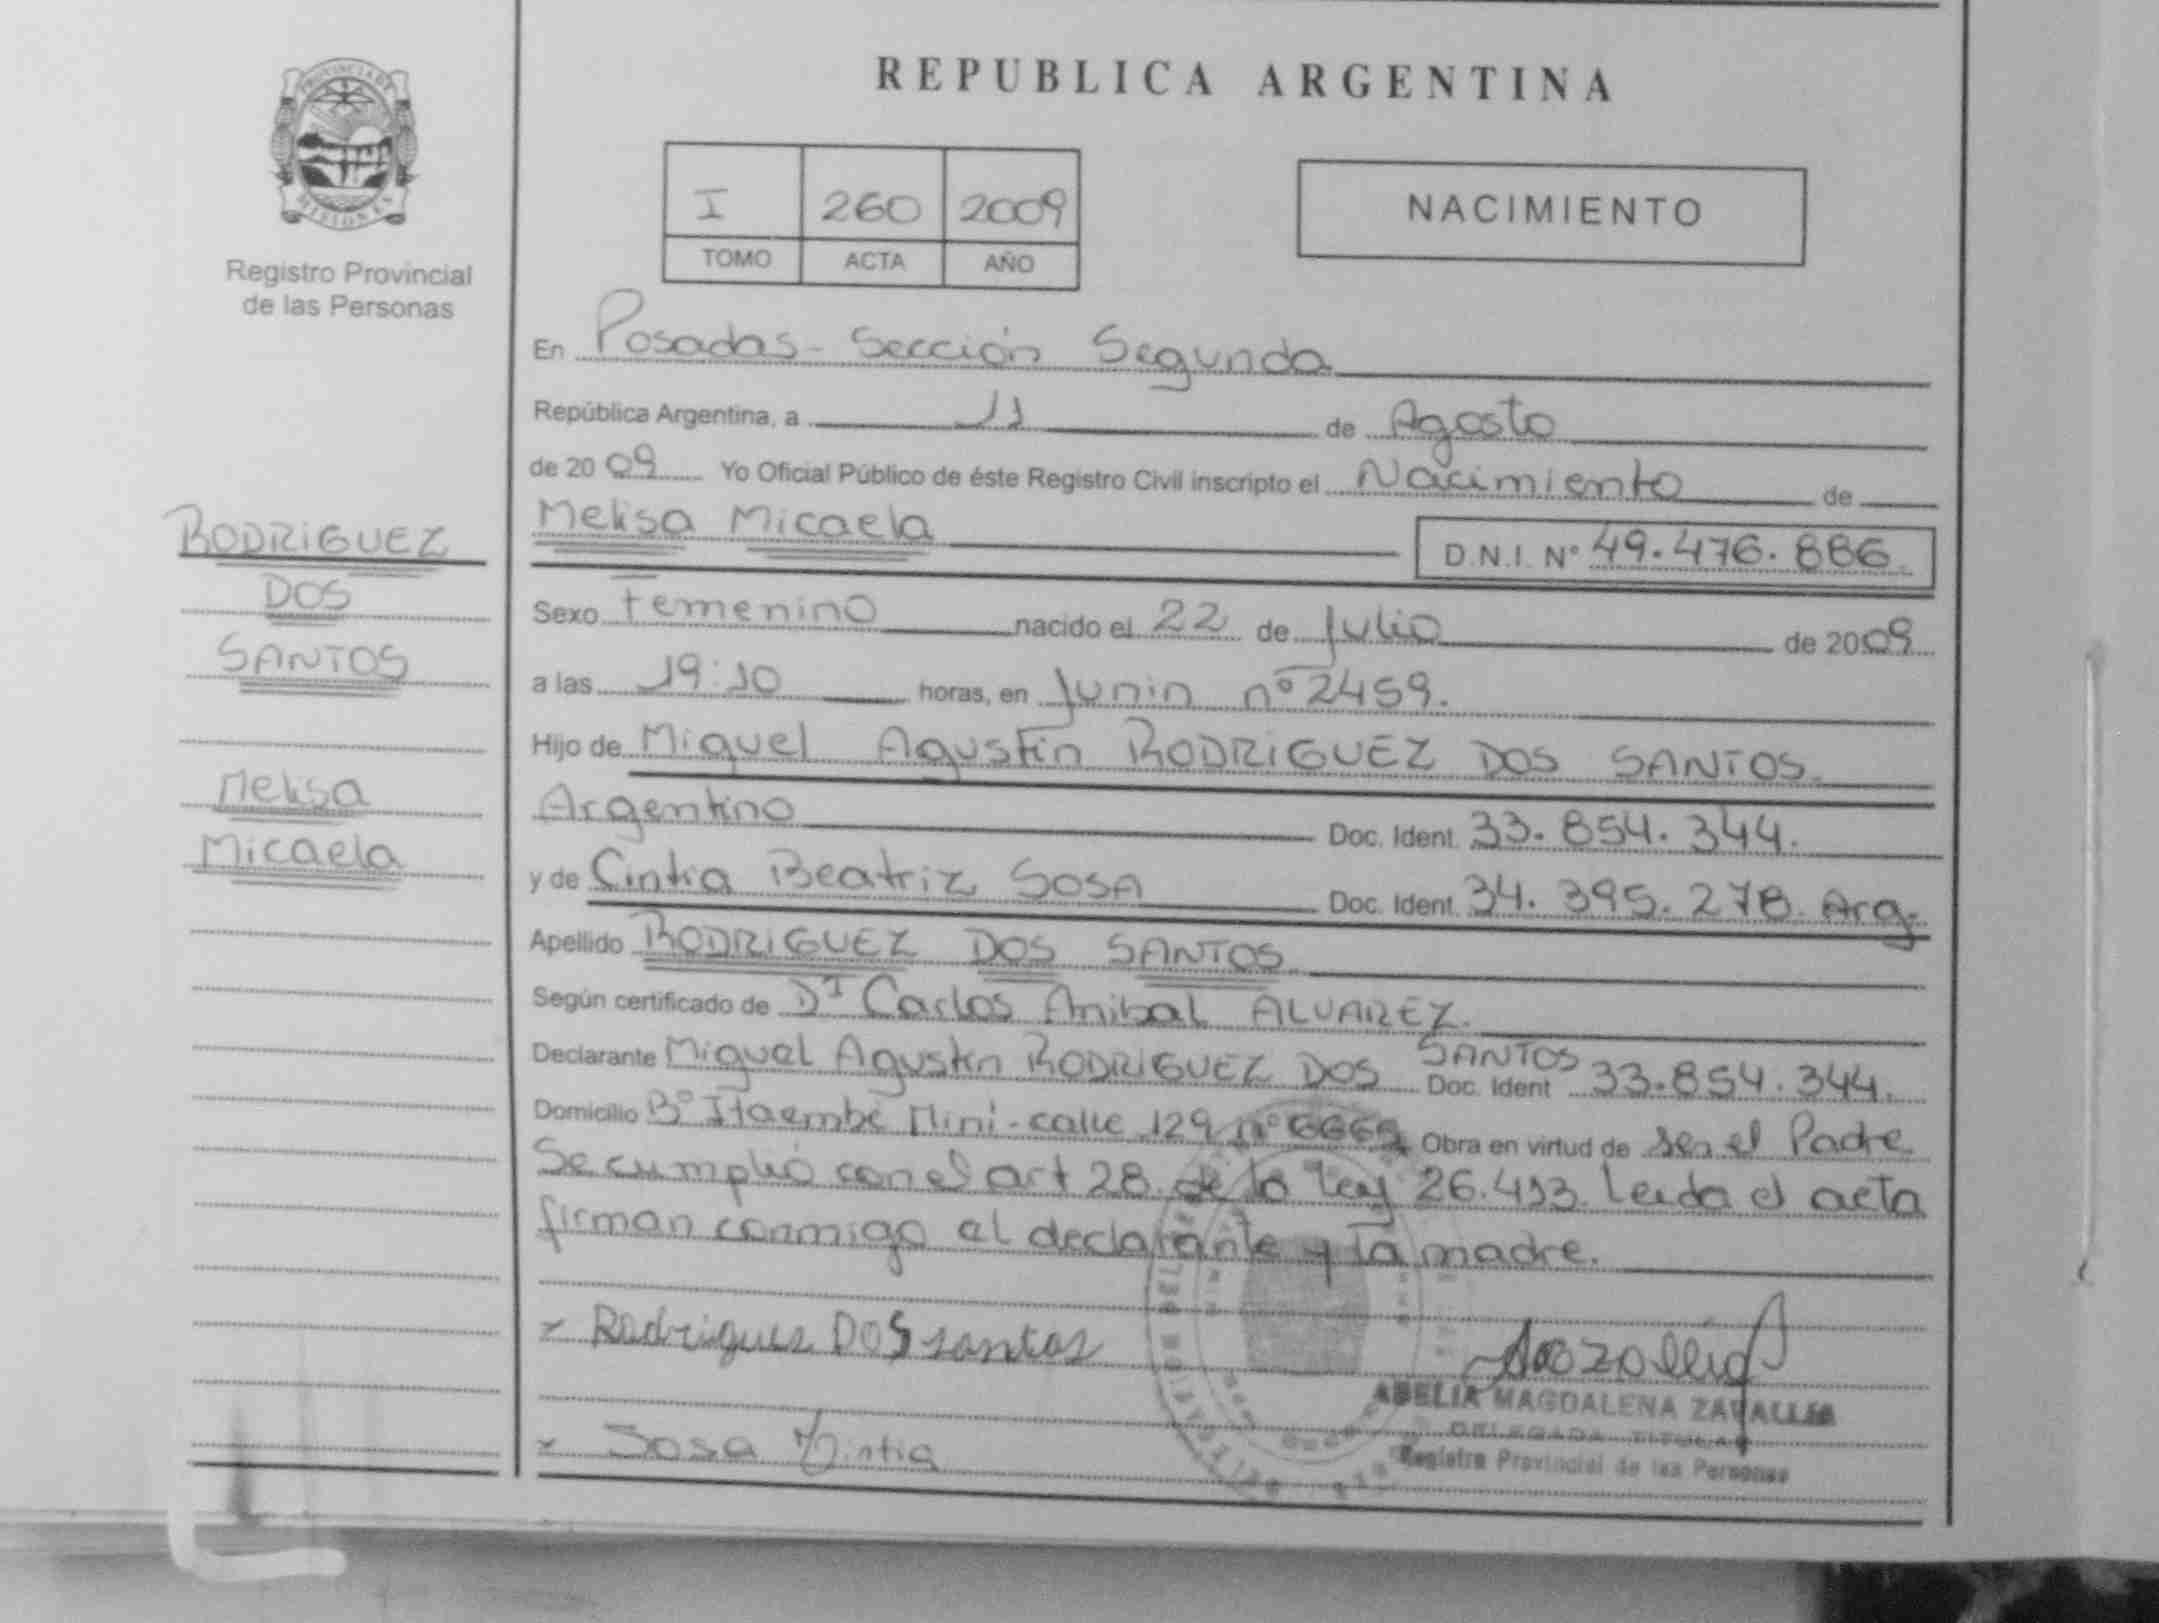 PROVINCIA DE
MISIONES
Registro Provincial
de las Personas
REPUBLICA ARGENTINA
I 260 2009
TOMO ACTA AÑO
NACIMIENTO
En Posadas - Sección Segunda
República Argentina, a 11 de Agosto
de 2009 Yo Oficial Público de éste Registro Civil inscripto el Nacimiento de
RODRIGUEZ
DOS
SANTOS
Melisa
Micaela
Melisa Micaela D.N.I. Nº 49.476.886.
Sexo Femenino nacido el 22 de Julio de 2009
a las 19:10 horas, en Junin nº 2459.
Hijo de Miguel Agustin RODRIGUEZ DOS SANTOS.
Argentino Doc. Ident. 33.854.344.
y de Cintia Beatriz SOSA Doc. Ident. 34.395.278. Arg.
Apellido RODRIGUEZ DOS SANTOS
Según certificado de Dr Carlos Anibal ALVAREZ.
Declarante Miguel Agustin RODRIGUEZ DOS SANTOS Doc. Ident 33.854.344.
Domicilio Bº Itaembé Mini - calle 129 nº 6669 Obra en virtud de ser el Padre
Se cumplió con el art 28 de la Ley 26.413. Leida el acta
firman conmigo el declarante y la madre.
x Rodrigues DOS santos
x Sosa Cintia
ABELIA MAGDALENA ZAVALLIA
DELEGADA TITULAR
Registro Provincial de las Personas